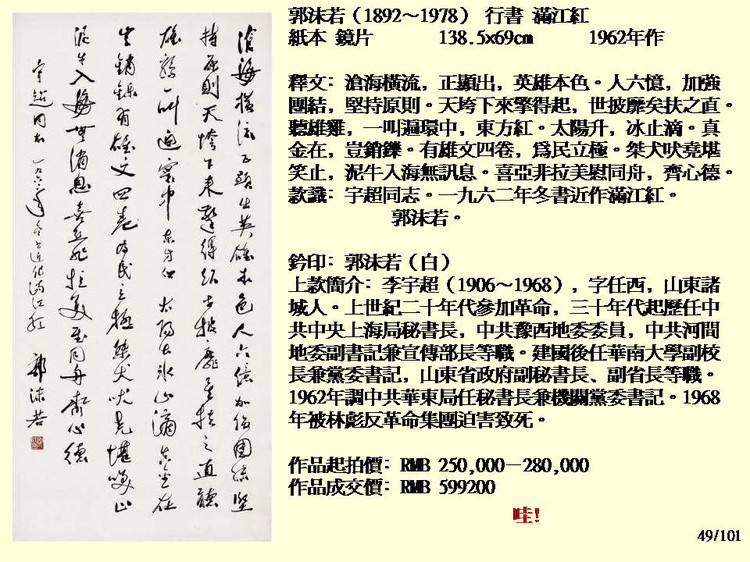 滄海橫流正顯出英雄本色人六億加強團結堅
持原則天垮下來擎得起世披靡矣扶之直聽
雄雞一叫遍寰中東方紅太陽出冰山滴真金在
豈銷鑠有雄文四卷為民立極桀犬吠堯堪笑止
泥牛入海無消息喜亞非拉美慰同舟齊心德
宇超同志 一九六二年冬書近作滿江紅 郭沫若
郭沫若（1892～1978） 行書 滿江紅
紙本 鏡片 138.5x69cm 1962年作
釋文: 滄海橫流，正顯出，英雄本色。人六憶，加強
團結，堅持原則。天垮下來擎得起，世披靡矣扶之直。
聽雄雞，一叫遍環中，東方紅。太陽升，冰止滴。真
金在，豈銷鑠。有雄文四卷，爲民立極。桀犬吠堯堪
笑止，泥牛入海無訊息。喜亞非拉美慰同舟，齊心德。
款識: 宇超同志。一九六二年冬書近作滿江紅。
郭沫若。
鈐印: 郭沫若（白）
上款簡介: 李宇超（1906～1968），字任西，山東諸
城人。上世紀二十年代參加革命，三十年代起歷任中
共中央上海局秘書長，中共豫西地委委員，中共河間
地委副書記兼宣傳部長等職。建國後任華南大學副校
長兼黨委書記，山東省政府副秘書長、副省長等職。
1962年調中共華東局任秘書長兼機關黨委書記。1968
年被林彪反革命集團迫害致死。
作品起拍價: RMB 250,000－280,000
作品成交價: RMB 599200
哇!
49/101